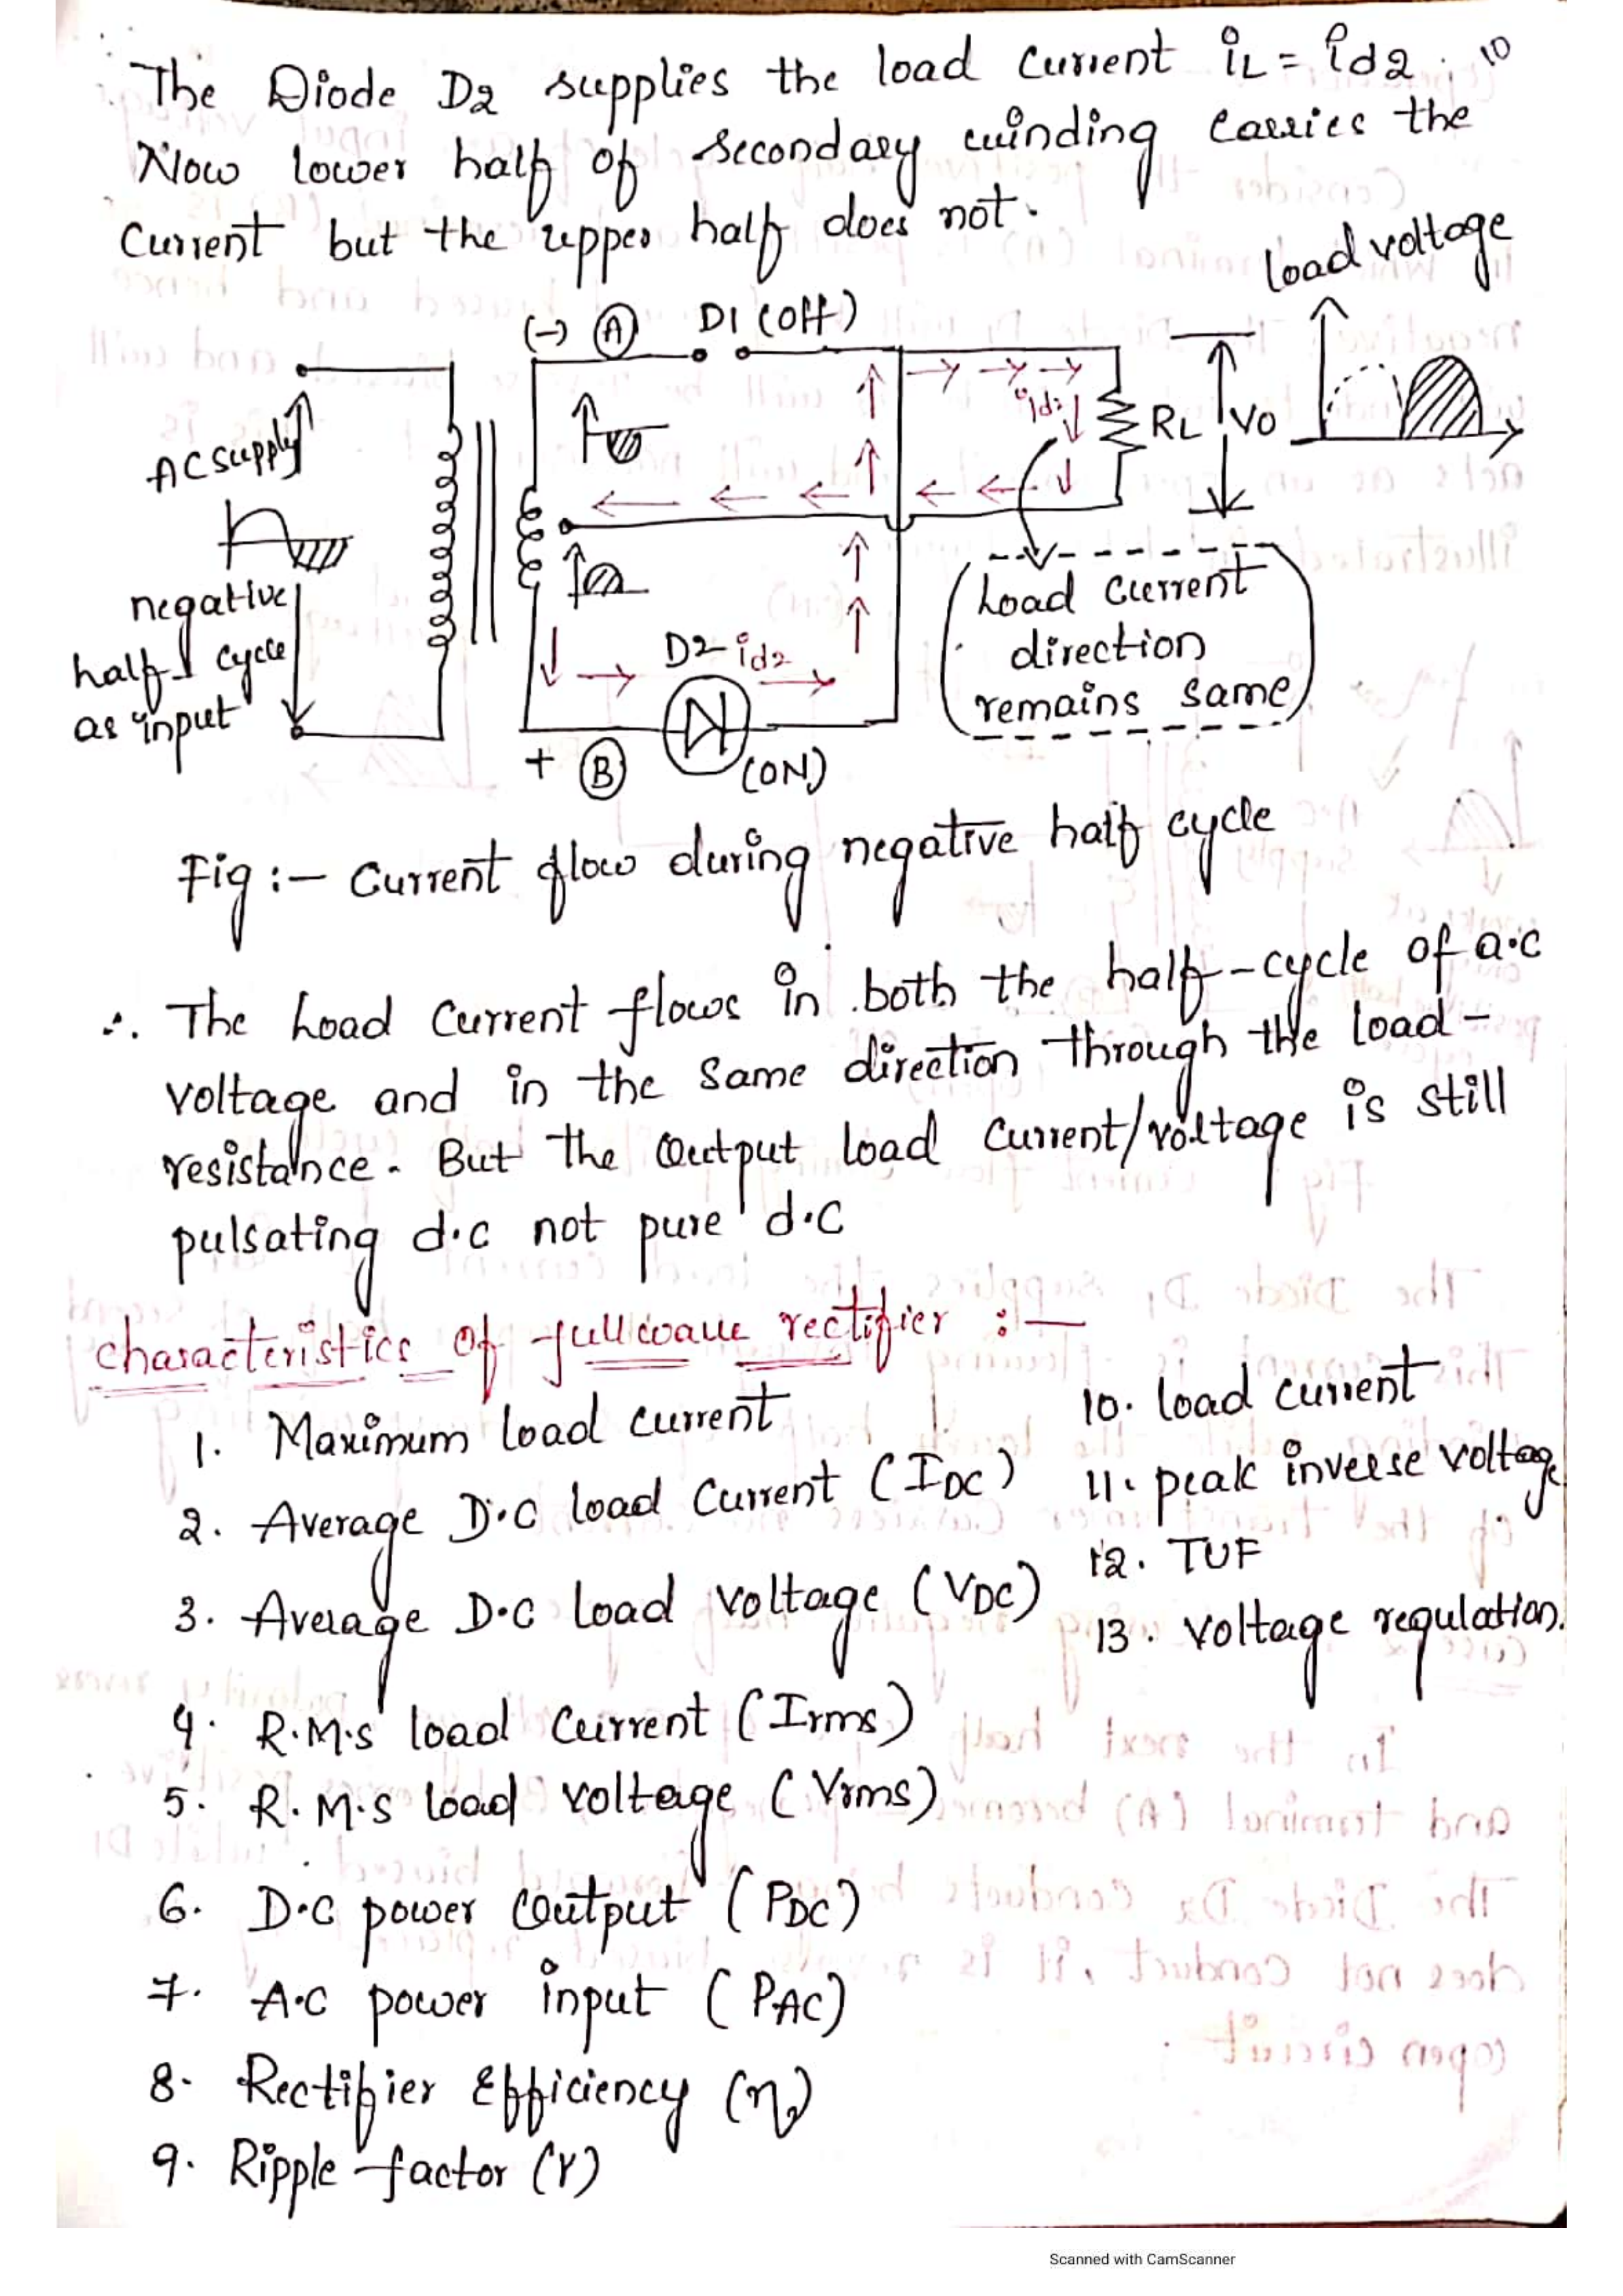 The Diode D2 supplies the load current iL = id2. 10
Now lower half of secondary winding carries the
Current but the upper half does not.
load voltage
(-) A D1 (off)
AC supply
id2
RL
Vo
negative
half cycle
as input
D2 id2
+ B (ON)
Load current
direction
remains same
Fig :- Current flow during negative half cycle
∴ The Load Current flows in both the half-cycle of a.c
voltage and in the same direction through the load-
resistance. But the output load current/voltage is still
pulsating d.c not pure d.c
characteristics of fullwave rectifier :-
1. Maximum load current
2. Average D.C load Current (IDC)
3. Average D.C load voltage (VDC)
4. R.M.S load current (Irms)
5. R.M.S load voltage (Vrms)
6. D.C power output (PDC)
7. A.C power input (PAC)
8. Rectifier Efficiency (η)
9. Ripple factor (r)
10. load current
11. peak inverse voltage
12. TUF
13. voltage regulation.
Scanned with CamScanner